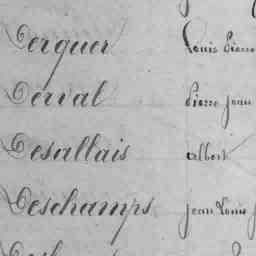 Derquer Louis Pierre
Derval Pierre Jean
Desallais albert
Deschamps Jean Louis